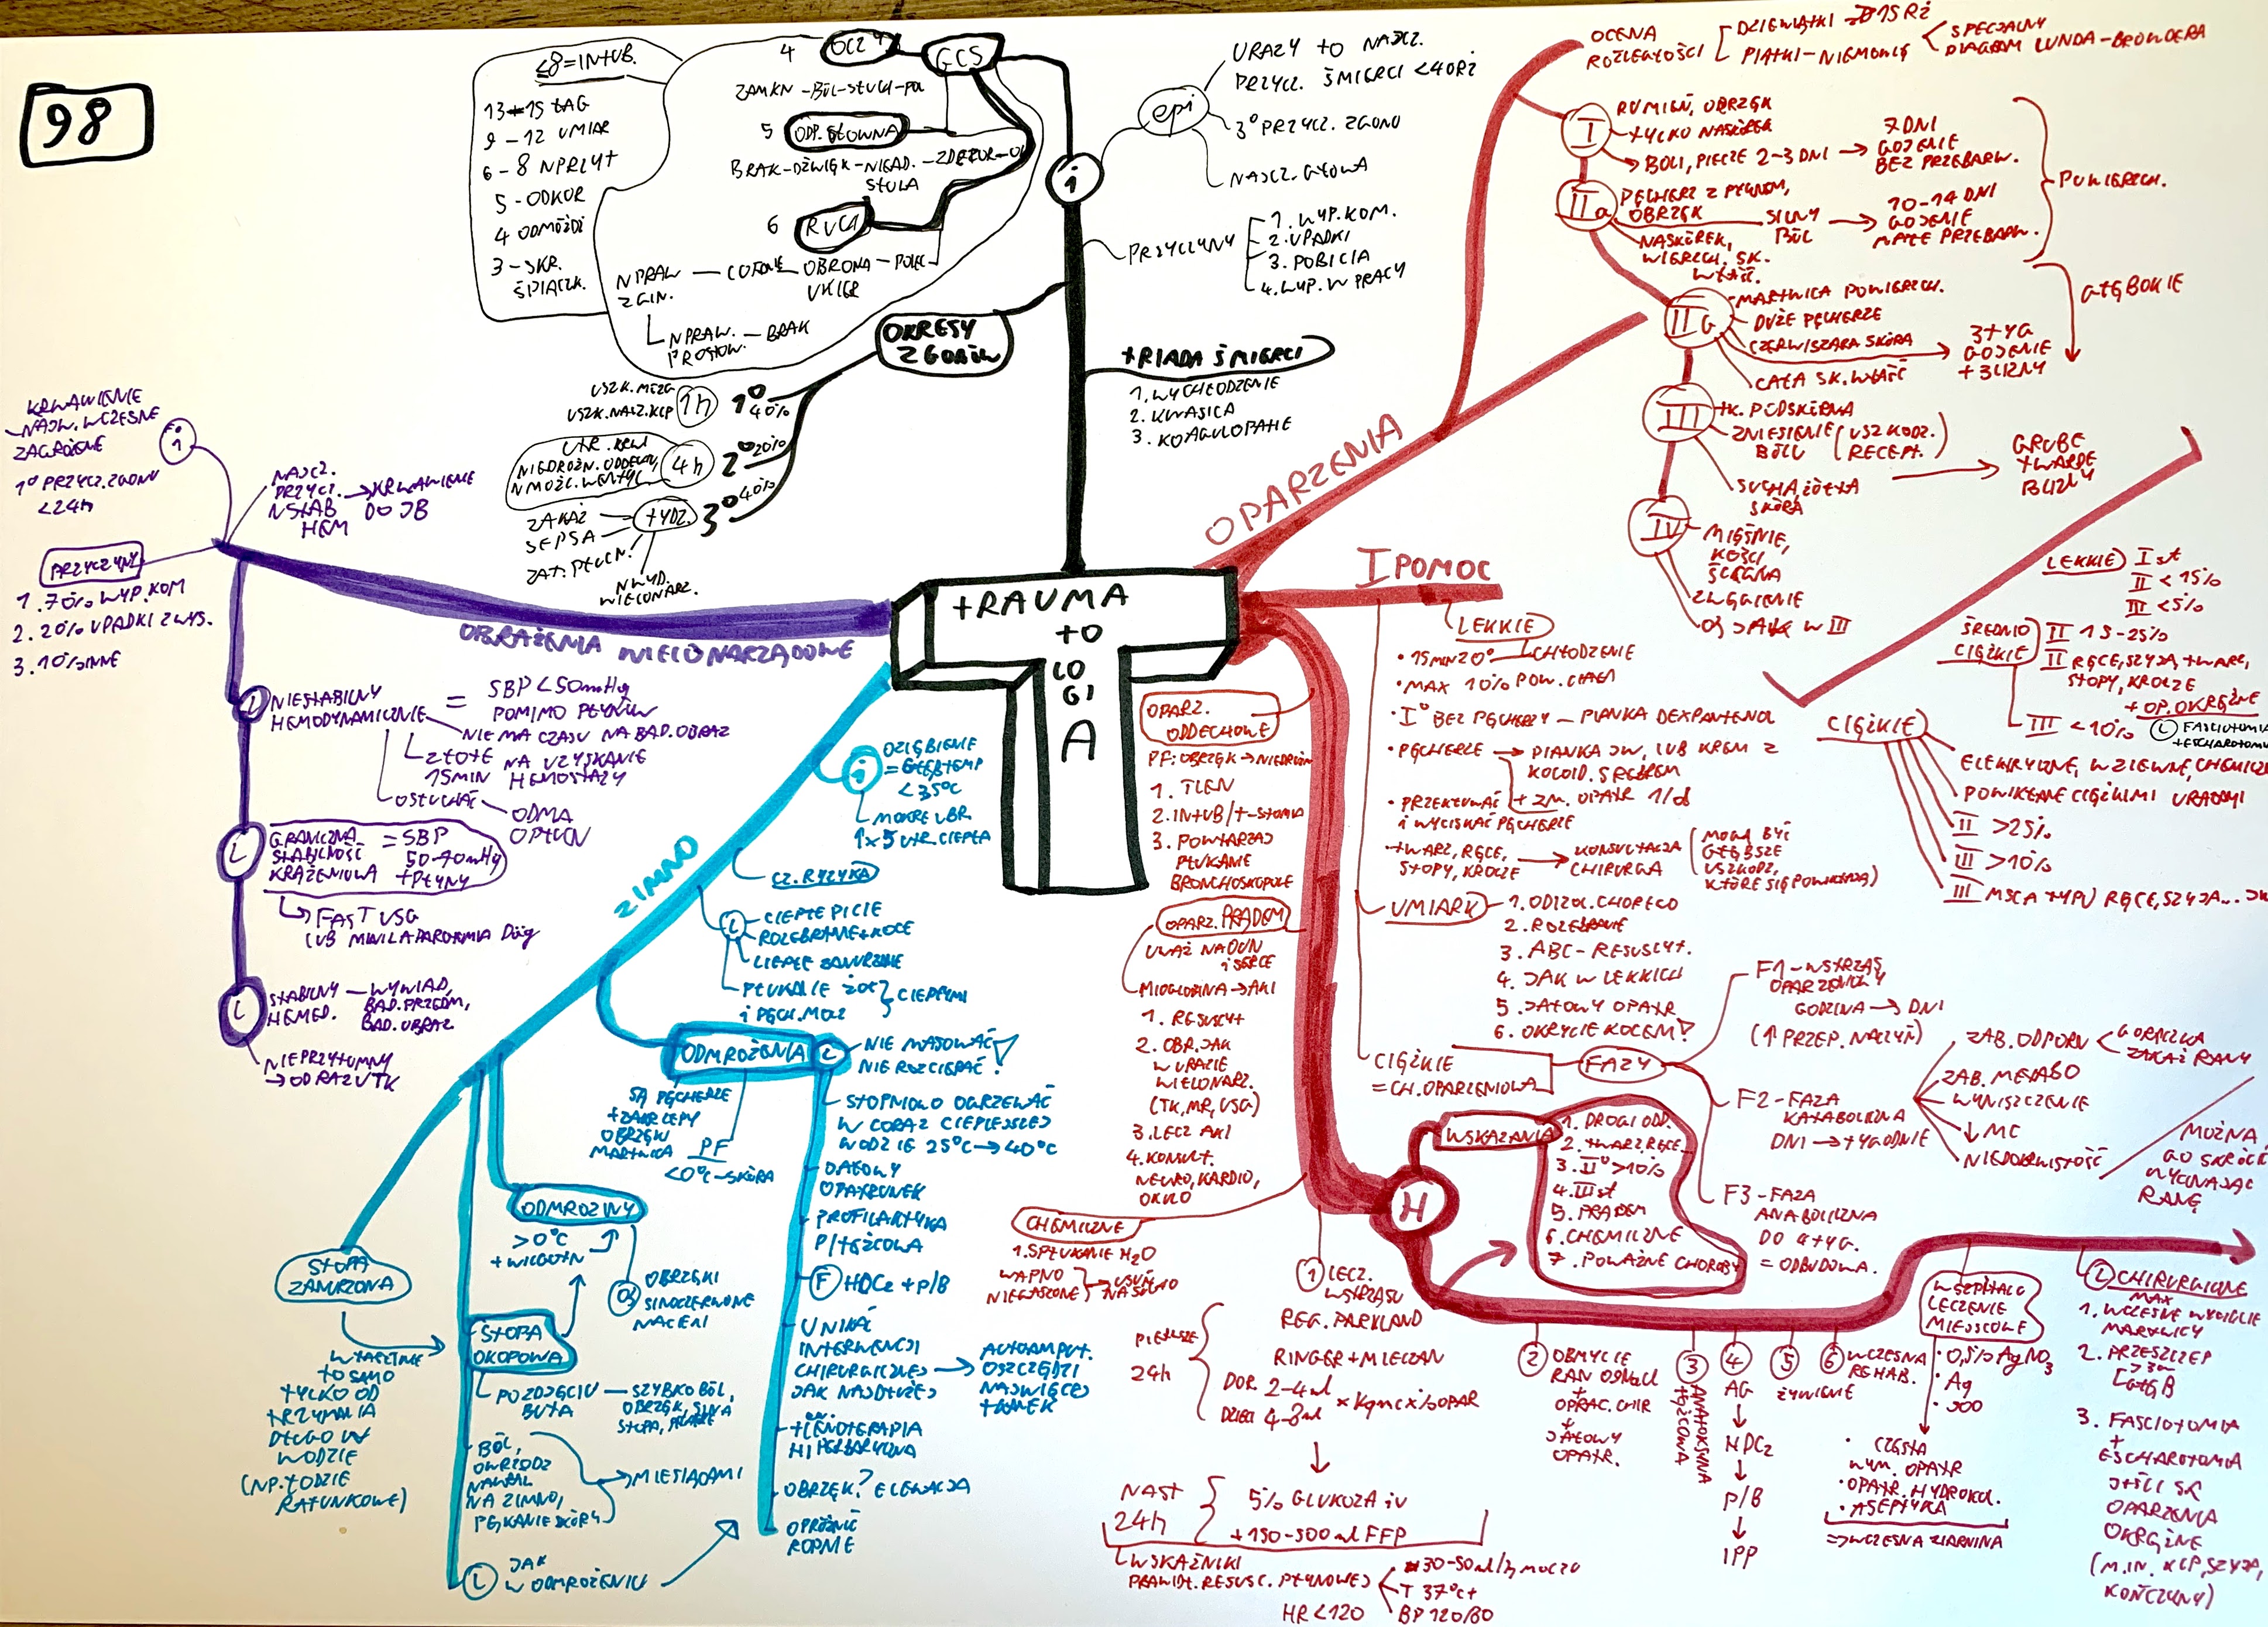 98
≤8=INTUB.
13-15 ŁAG
9-12 UMIAR
6-8 NPRZYT
5-ODKOR
4 ODMÓŻDŻ
3-SKR.
ŚPIĄCZK.
4 OCZY
GCS
ZAMKN-BÓL-SŁUCH-
5 ODP. SŁOWNA
BRAK-DŹWIĘK-NIEAD.-
6 RUCH
NPRAW
ZGIN.
COFANIE
OBRONA
UKIER
NPRAW.
PROSTOW.
BRAK
i
epi
URAZY TO NAJCZ.
PRZYCZ. ŚMIERCI <40RŻ
3° PRZYCZ. ZGONU
NAJCZ. GŁOWA
PRZYCZYNY
1. WYP. KOM.
2. UPADKI
3. POBICIA
4. WYP. W PRACY
OKRESY
ZGONÓW
USZK. MÓZG
USZK. NACZ. KLP
1h
1° 40%
UTR. KRWI
NIEDROŻN. ODDECH
NMOŻL. WENTYL
4h
2° 20%
ZAKAŻ
SEPSA
ZAT. PŁUCN.
TYDZ.
3° 40%
NWYD.
WIELONARZ.
TRIADA ŚMIERCI
1. WYCHŁODZENIE
2. KWASICA
3. KOAGULOPATIE
TRAUMA
TO
LO
GI
A
OBRAŻENIA WIELONARZĄDOWE
i
KRWAWIENIE
NAJW. WCZESNE
ZAGROŻENIE
1° PRZYCZ. ZGONU
<24h
NAJCZ.
PRZYCZ.
NSTAB
HEM
KRWAWIENIE
DO JB
PRZYCZYNY
1. 70% WYP. KOM
2. 20% UPADKI Z WYS.
3. 10% INNE
L
NIESTABILNY
HEMODYNAMICZNIE
= SBP <50mmHg
POMIMO PŁYNÓW
NIE MA CZASU NA BAD. OBRAZ
ZŁOTE
15MIN
NA UZYSKANIE
HEMOSTAZY
OSŁUCHAĆ
ODMA
OPŁUCN
L
GRANICZNA
STABILNOŚĆ
KRĄŻENIOWA
= SBP
50-70mmHg
+PŁYNY
FAST USG
LUB MINILAPAROTOMIA
L
STABILNY
HEMOD.
WYWIAD,
BAD. PRZEDM,
BAD. OBRAZ
NIEPRZYTOMNY
→ OD RAZU TK
ZIMNO
i
OZIĘBIENIE
= GŁĘB TEMP
<35°C
MOKRE UBR
↑x5 UTR. CIEPŁA
CZ. RYZYKA
L
CIEPŁE PICIE
ROZEBRANIE+KOCE
CIEPŁE ZANURZENIE
PŁUKANIE ŻOŁ
i PĘCH. MOCZ
CIEPŁYMI
ODMROŻENIA
L
NIE MASOWAĆ!
NIE ROZCIERAĆ!
SĄ PĘCHERZE
+ZAKRZEPY
OBRZĘK
MARTWICA
PF
<0°C-SKÓRA
STOPNIOWO OGRZEWAĆ
W CORAZ CIEPLEJSZEJ
WODZIE 25°C→40°C
JAŁOWY
OPATRUNEK
PROFILAKTYKA
P/TĘŻCOWA
F HDCz + P/B
UNIKAĆ
INTERWENCJI
CHIRURGICZNEJ
JAK NAJDŁUŻEJ
AUTOAMPUT.
OSZCZĘDZI
NAJWIĘCEJ
TKANEK
TLENOTERAPIA
HIPERBARYCZNA
OBRZĘK? ELEWACJA
OPRÓŻNIĆ
ROPNIE
ODMROZINY
>0°C
+WILGOTN
Oj
OBRZĘKI
SINOCZERWONE
NACIEKI
STOPA
ZANURZONA
WŁAŚCIWIE
TO SAMO
TYLKO OD
TRZYMANIA
DŁUGO W
WODZIE
(NP. ŁODZIE
RATUNKOWE)
STOPA
OKOPOWA
PO ZDJĘCIU
BUTA
SZYBKO BÓL,
OBRZĘK, SINA
BÓL,
OWRZODZ
NA ZIMNO,
PĘKANIE SKÓRY
→MIESIĄCAMI
L JAK
W ODMROŻENIU
OPARZENIA
OCENA
ROZLEGŁOŚCI
DZIEWIĄTKI → 15RŻ
PIĄTKI-NIEMOWLĘ
SPECJALNY
DIAGRAM LUNDA-BROWDERA
I
RUMIEŃ, OBRZĘK
TYLKO NASKÓREK
BOLI, PIECZE 2-3 DNI
7 DNI
GOJENIE
BEZ PRZEBARW.
IIa
PĘCHERZ Z PŁYNEM,
OBRZĘK
SILNY
BÓL
NASKÓREK,
WIERZCH. SK.
WŁAŚC.
10-14 DNI
GOJENIE
MAŁE PRZEBARW.
POWIERZCH.
IIG
MARTWICA POWIERZCH.
DUŻE PĘCHERZE
CZERW/SZARA SKÓRA
CAŁA SK. WŁAŚC
3 TYG
GOJENIE
+BLIZNY
GŁĘBOKIE
III
TK. PODSKÓRNA
ZNIESIENIE
BÓLU
(USZKODZ.
RECEPT.)
SUCHA, ŻÓŁTA
SKÓRA
GRUBE
TWARDE
BLIZNY
IV
MIĘŚNIE,
KOŚCI
ŚCIĘGNA
ZWĘGLENIE
Oj JAK W III
LEKKIE
I st
II <15%
III <5%
ŚREDNIO
CIĘŻKIE
II 15-25%
II RĘCE, SZYJA, TWARZ,
STOPY, KROCZE
+ OP. OKRĘŻNE
III <10%
L FASCIOTOMIA
+ESCHAROTOMIA
CIĘŻKIE
ELEKTRYCZNE, WZIEWNE, CHEMICZNE
POWIKŁANE CIĘŻKIMI URAZAMI
II >25%
III >10%
III MSCA TYPU RĘCE, SZYJA...
I POMOC
LEKKIE
15min 20° CHŁODZENIE
MAX 10% POW. CIAŁA
I° BEZ PĘCHERZY - PIANKA DEXPANTENOL
PĘCHERZE → PIANKA JW, LUB KREM Z
KOLOID. SREBREM
+ ZM. OPATR 1/d
PRZEKŁUWAĆ
i WYCISKAĆ PĘCHERZE
TWARZ, RĘCE,
STOPY, KROCZE
KONSULTACJA
CHIRURGA
(MOGĄ BYĆ
GŁĘBSZE
USZKODZ,
KTÓRE SIĘ POWIKŁAJĄ)
UMIARK
1. ODIZOL. CHOREGO
2. ROZEBRANIE
3. ABC-RESUSCYT.
4. JAK W LEKKICH
5. JAŁOWY OPATR
6. OKRYCIE KOCEM!
CIĘŻKIE
=CH. OPARZENIOWA
FAZY
F1-WSTRZĄS
OPARZENIOWY
GODZINA → DNI
(↑ PRZEP. NACZYŃ)
F2-FAZA
KATABOLICZNA
DNI → TYGODNIE
ZAB. ODPORN
GORĄCZKA
ZAKAŻ RANY
ZAB. METABO
WYNISZCZENIE
↓MC
NIEDOKRWISTOŚĆ
F3-FAZA
ANABOLICZNA
DO TYG.
= ODBUDOWA.
MOŻNA
GO SKRÓCIĆ
WYCINAJĄC
RANĘ
OPARZ.
ODDECHOWE
PF: OBRZĘK→NIEDROŻN
1. TLEN
2. INTUB/T-STOMIA
3. POWTARZAJ
PŁUKANIE
BRONCHOSKOPOWE
OPARZ. PRĄDEM
UWAŻ NA OUN
i SERCE
MIOGLOBINA→AKI
1. RESUSCYT
2. OBR. JAK
W URAZIE
WIELONARZ.
(TK, MR, USG)
3. LECZ AKI
4. KONSULT.
NEURO, KARDIO,
OKULO
CHEMICZNE
1. SPŁUKANIE H2O
WAPNO
NIEGASZONE
USUŃ
NA SUCHO
H
WSKAZANIA
1. DROGI ODD.
2. TWARZ, RĘCE...
3. II° >10%
4. III st
5. PRĄDEM
6. CHEMICZNE
7. POWAŻNE CHOROBY
1 LECZ.
WSTRZĄSU
REG. PARKLAND
PIERWSZE
24h
RINGER+MLECZAN
DOR. 2-4ml
DZIECI 4-8ml
x kgmc x %OPAR
NAST
24h
5% GLUKOZA iv
+ 150-500ml FFP
WSKAŹNIKI
PRAWIDŁ. RESUSC. PŁYNOWEJ
30-50ml/h MOCZU
T 37°C↑
HR <120
BP 120/80
2 OBMYCIE
RAN
+
OPRAC. CHIR
+
JAŁOWY
OPATR.
3 ANATOKSYNA
TĘŻCOWA
4 AG
↓
HDCz
↓
P/B
↓
IPP
5 ŻYWIENIE
6 WCZESNA
REHAB.
W SZPITALU
LECZENIE
MIEJSCOWE
0,5% AgNO3
Ag
JOD
CZĘSTA
WYM. OPATR
OPATR. HYDROKOL.
ASEPTYKA
⇒WCZESNA ZIARNINA
L CHIRURGICZNE
MAX
1. WCZESNE WYCIĘCIE
MARTWICY
2. PRZESZCZEP
3. FASCIOTOMIA
+
ESCHAROTOMIA
JEŚLI SĄ
OPARZENIA
OKRĘŻNE
(M.IN. KLP, SZYJA,
KOŃCZYNY)